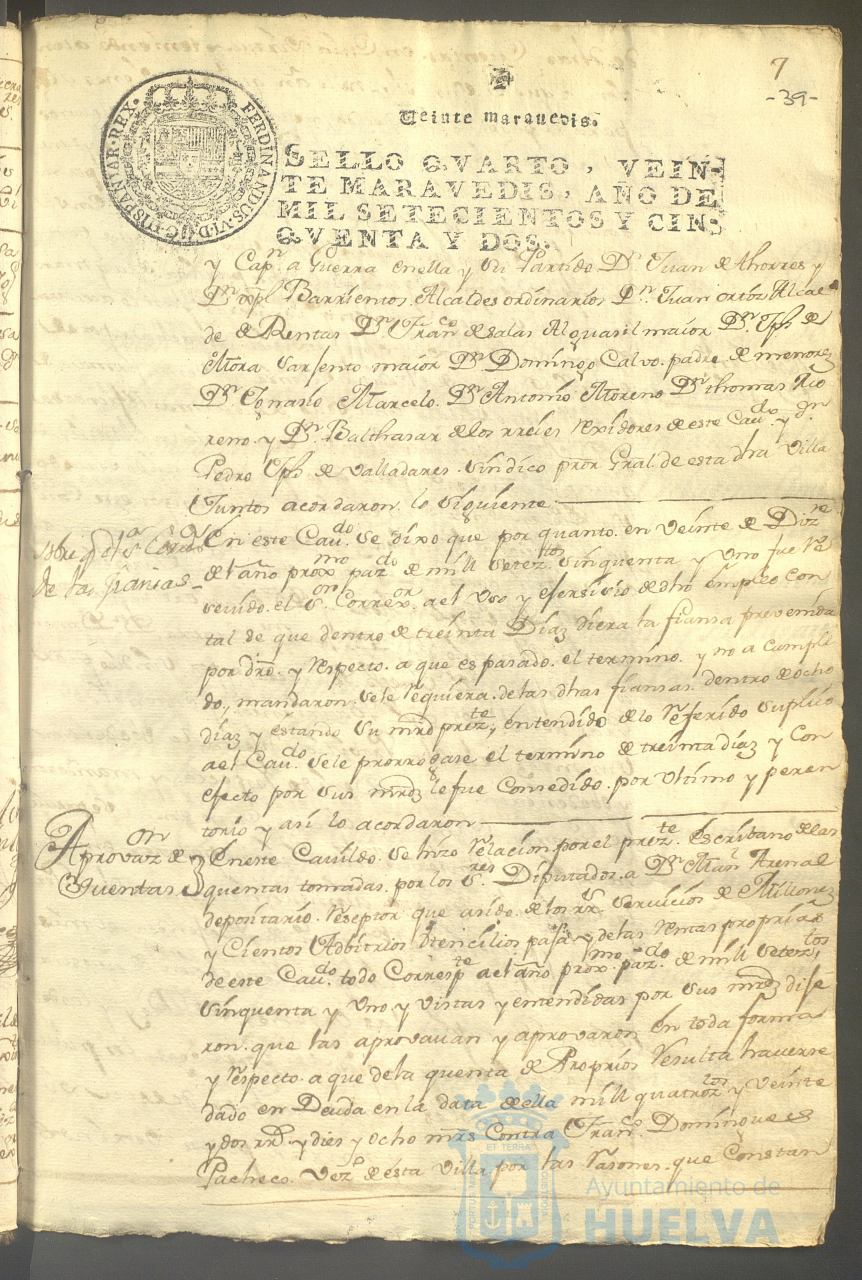 7
-39-
Veinte marauedis.
SELLO QVARTO, VEIN-
TE MARAVEDIS, AÑO DE
MIL SETECIENTOS Y CIN-
QVENTA Y DOS.
FERDINANDUS·VI·D·G·HISPANIAR·REX·
y Capn. a Guerra en ella y su Partido Dn. Juan de Ahorres y
Dn. xpl Barrientos Alcaldes ordinarios Dn. Juan ortiz Alcal
de de Rentas Dn. Franco. de salas Alguasil maior Dn. Jph de
Mora sarsento maior Dn. Domingo Calvo padre de menores
Dn. Ignasio Marcelo Dn. Antonio Moreno Dn. thomas Mo
reno y Dn. Balthasar de los rreies rexidores de este Caudo. y dn.
Pedro Jph de valladares sindico pror. Gral. de esta dha villa
Juntos acordaron lo siguiente
sobre
de las fiansas
En este Caudo. se dixo que por quanto en veinte de Dize
del año proxmo pazdo de mill seteztos sinquenta y uno fue re
sevido el Sor Correxor. a el uso y exersisio de dho empleo con
tal de que dentro de treinta Dias diera la fiansa prevenida
por dro. y respecto a que es pasado el termino y no a cumpli
do, mandaron se le requiera de las dhas fiansas dentro de ocho
dias y estando su mrd preste, entendido de lo referido suplicó
a el Caudo. se le prorrogase el termino de treinta dias y con
efecto por sus mrds le fue consedido por ultimo y peren
torio y asi lo acordaron
Aprovazon de
Cuentas
En este Cavildo se hizo relacion por el prezte. escribano de las
quentas tomadas por los Sres. Diputados a Dn. Manl Arenal
depositario reseptor que a sido de los rrs. servicios de Millones
y Cientos Adbitrios Utencilios y de las rentas proprias
de este Caudo. todo Correspte a el año proxmo. pazdo. de mill seteztos,
sinquenta y uno y vistas y entendidas por sus mrds dije
ron que las aprovauan y aprovaron en toda forma
y respecto a que de la quenta de Proprios resulta haverse
dado en Deuda en la data de ella mill quatrozlos y veinte
y dos rrs. y dies y ocho mrs. Contra Franco. Domingues
Pacheco vezo. de esta villa por las rasones que Constan
Ayuntamiento de
HUELVA